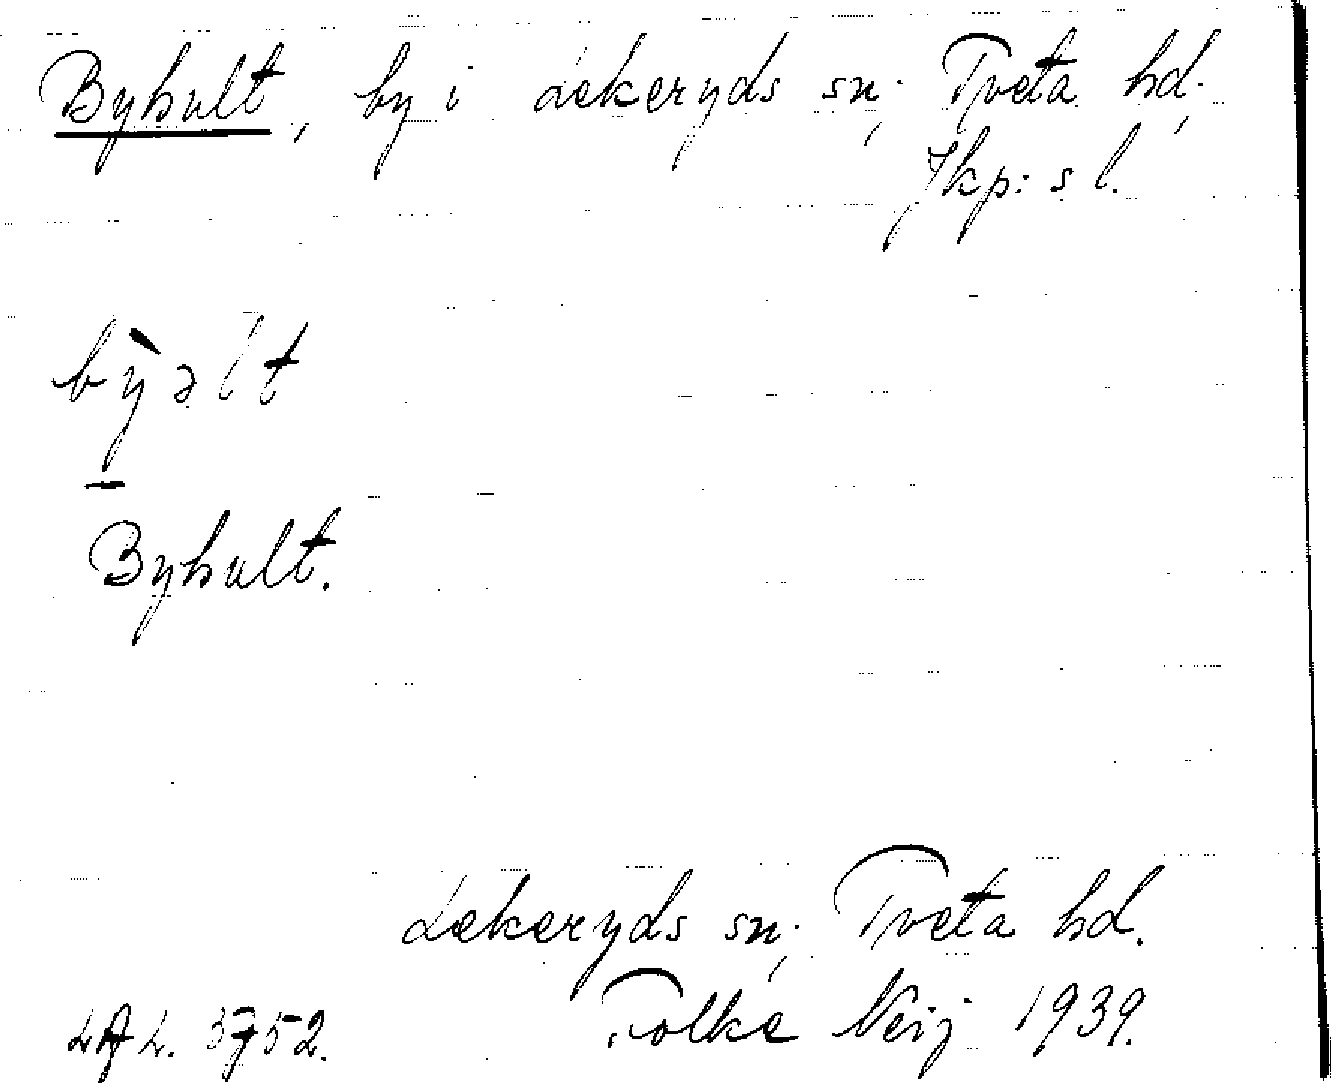 Byhult, by i Lekeryds sn., Tveta hd.,
Jkp:s l.
bỳəlt
Byhult.
Lekeryds sn., Tveta hd.
LAL. 3752. Folke Neij 1939.